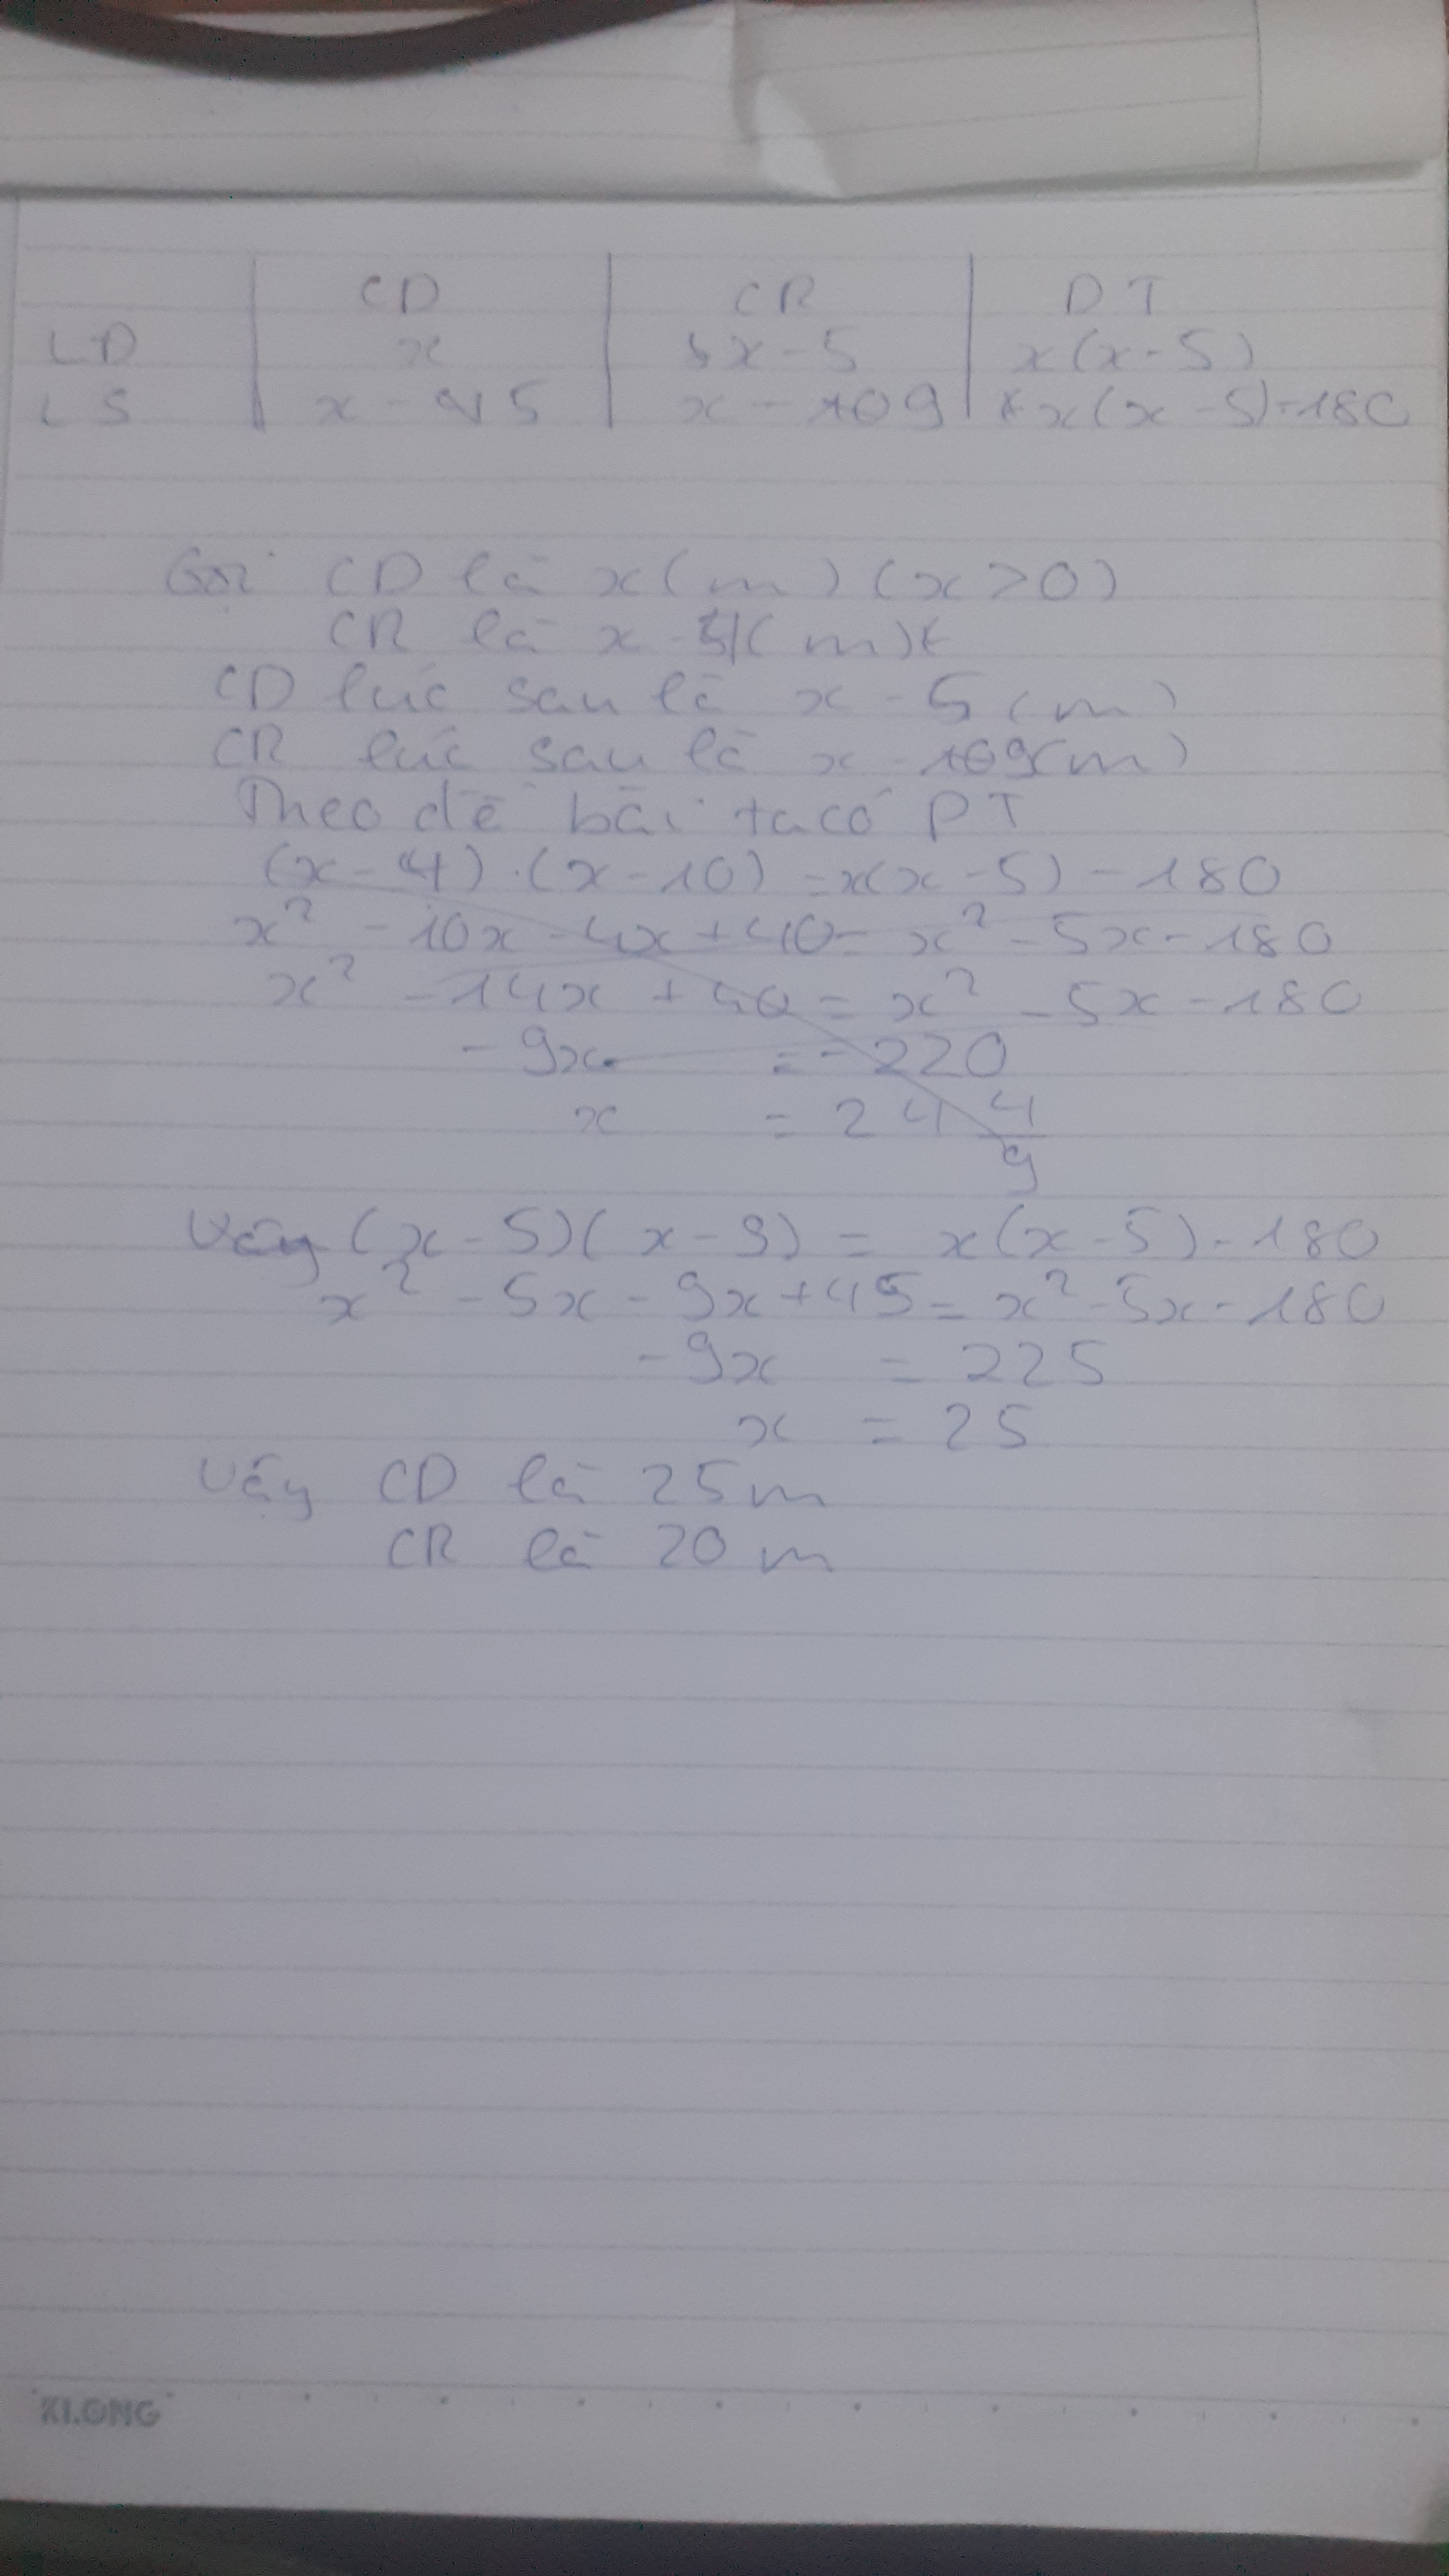 CD CR DT
LD x x-5 x(x-5)
LS x - 5 x - 9 x(x-5)-180
Gọi CD là x(m) (x>0)
CR là x-5(m)
CD lúc sau là x-5(m)
CR lúc sau là x-9(m)
Theo đề bài ta có PT
(x-4).(x-10) =x(x-5)-180
x² -10x-4x+40= x²-5x-180
x² -14x +40= x² -5x-180
-9x =-220
x = 24 4/9
Vậy (x-5)(x-9) = x(x-5)-180
x² -5x-9x+45= x²-5x-180
-9x = 225
x = 25
Vậy CD là 25m
CR là 20m
KLONG